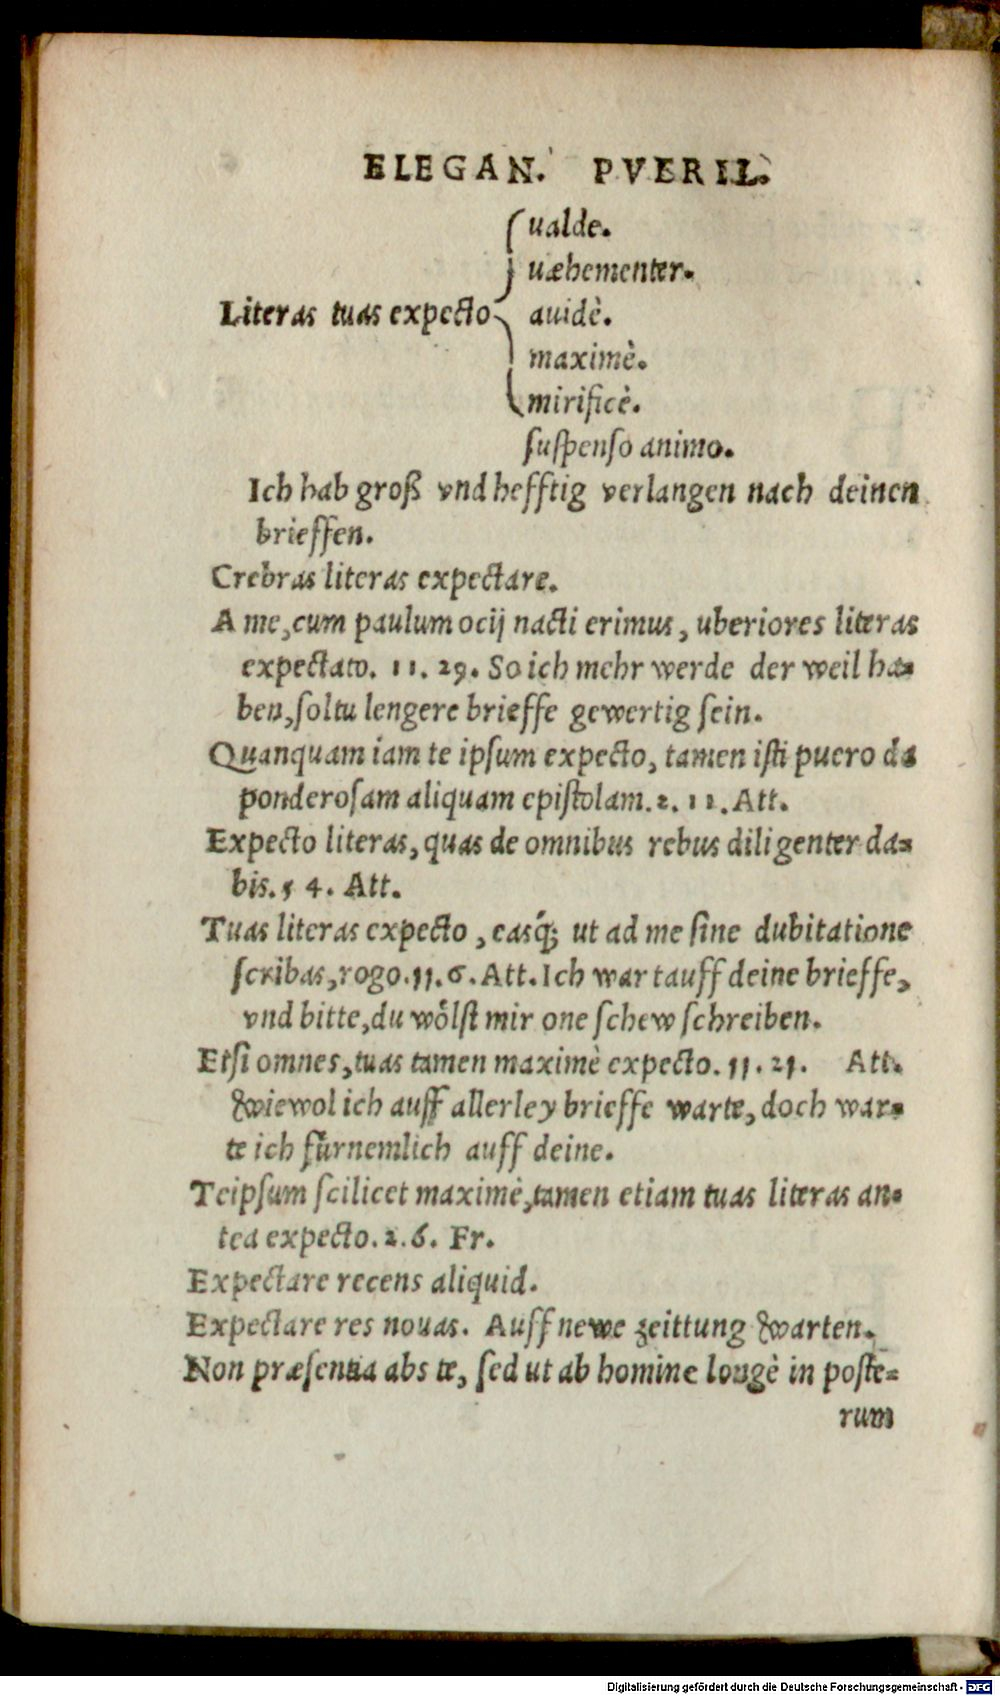 ELEGAN. PVERIL.
ualde.
uæhementer.
Literas tuas expecto auidè.
maximè.
mirificè.
ſuſpenſo animo.
Ich hab groß vnd hefftig verlangen nach deinen
brieffen.
Crebras literas expectare.
A me, cum paulum ocij nacti erimus, uberiores literas
expectato. 11. 29. So ich mehr werde der weil ha⸗
ben, ſoltu lengere brieffe gewertig ſein.
Quanquam iam te ipſum expecto, tamen iſti puero da
ponderoſam aliquam epiſtolam. 2. 11. Att.
Expecto literas, quas de omnibus rebus diligenter da⸗
bis. 5 4. Att.
Tuas literas expecto, easq́; ut ad me ſine dubitatione
ſcribas, rogo. 11. 6. Att. Ich wart auff deine brieffe,
vnd bitte, du wölſt mir one ſchew ſchreiben.
Etſi omnes, tuas tamen maximè expecto. 11. 21. Att.
Wiewol ich auff allerley brieffe warte, doch war⸗
te ich fürnemlich auff deine.
Teipſum ſcilicet maximè, tamen etiam tuas literas an⸗
tea expecto. 2. 6. Fr.
Expectare recens aliquid.
Expectare res nouas. Auff newe zeittung warten.
Non præſentia abs te, ſed ut ab homine longè in poſte⸗
rum
Digitalisierung gefördert durch die Deutsche Forschungsgemeinschaft - DFG